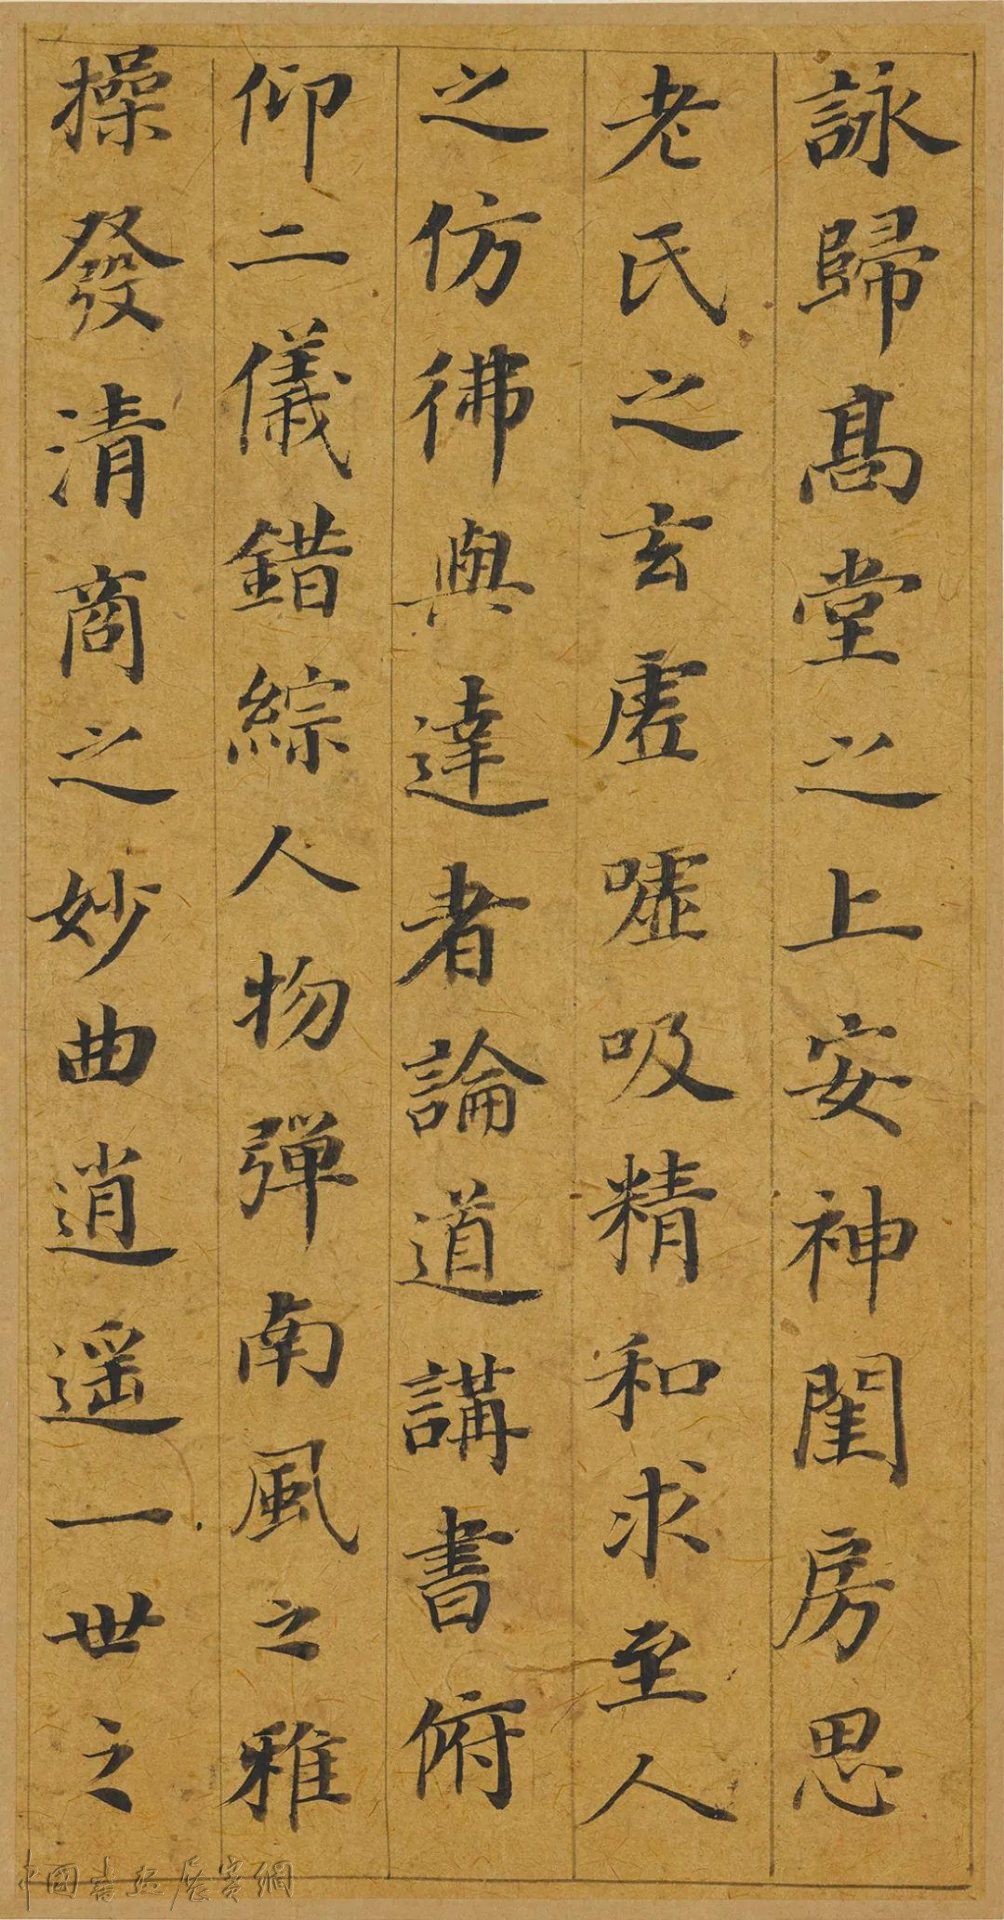 詠歸高堂之上安神閨房思
老氏之玄虛噓吸精和求至人
之仿彿與達者論道講書俯
仰二儀錯綜人物弹南風之雅
操發清商之妙曲逍遥一世之
中國書法展賞網